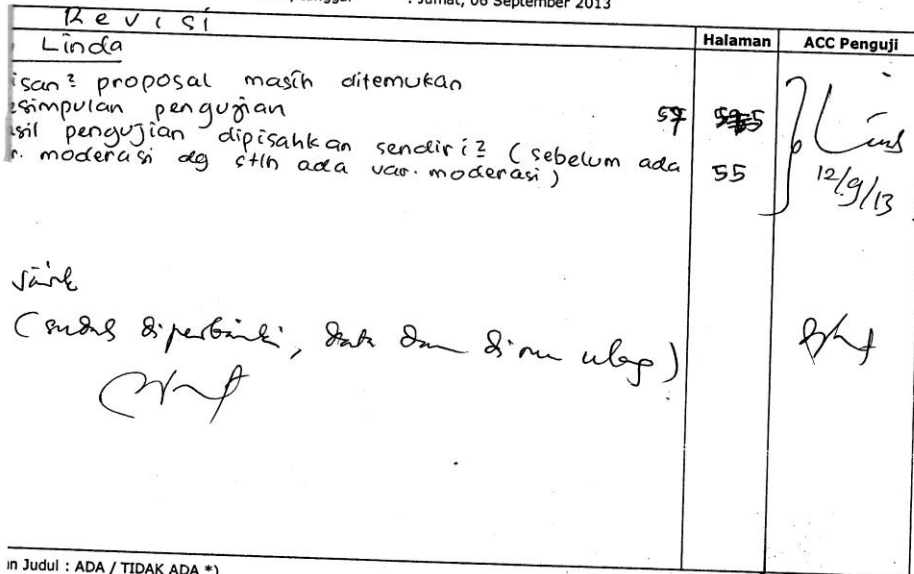 : Jumat, 06 September 2013
Revisi
Halaman
ACC Penguji
Linda
isan² proposal masih ditemukan
esimpulan pengujian 57
asil pengujian dipisahkan sendiri² (sebelum ada 55
r. moderasi dg stlh ada var. moderasi)
12/9/13
(sudah diperbaiki, data dan di run ulang)
an Judul : ADA / TIDAK ADA *)